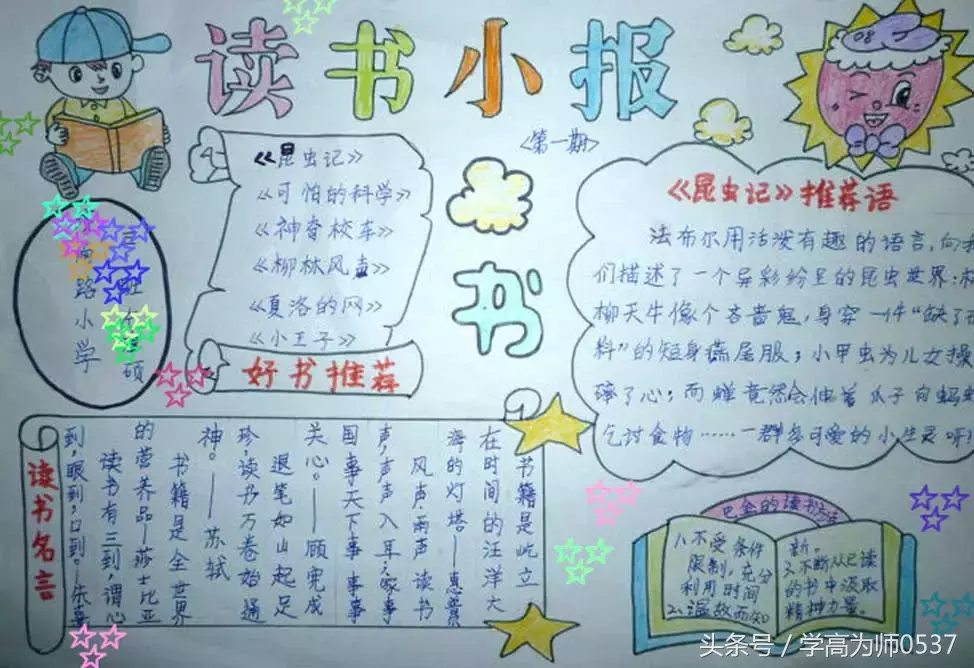 读书小报
<第一期>
08
《昆虫记》
《可怕的科学》
《神奇校车》
《柳林风声》
《夏洛的网》
《小王子》
好书推荐
书
《昆虫记》推荐语
法布尔用活泼有趣的语言,向
们描述了一个异彩纷呈的昆虫世界:
柳天牛像个吝啬鬼,身穿一件“缺了
料”的短身燕尾服;小甲虫为儿女操
碎了心;而蝉竟然会伸着爪子向蚂
乞讨食物……一群多可爱的小生灵呀
路小学
硕
读书名言
书籍是屹立
在时间的汪洋大
海的灯塔——惠普
风声雨声读书
声,声声入耳;家事
国事天下事事事
关心。——顾宪成
退笔如山起足
珍,读书万卷始通
神。——苏轼
书籍是全世界
的营养品—莎士比亚
读书有三到,谓心
到,眼到,口到。—朱熹
巴金的读书方法
1.不受条件
限制,充分
利用时间
2.温故而知
新。
3.不断从已读
的书中汲取
精神力量。
头条号/学高为师0537